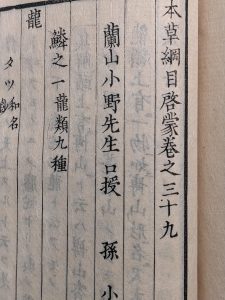 本草綱目啓蒙巻之三十九
蘭山小野先生口授　孫　小
鱗之一龍類九種
龍
タツ和名